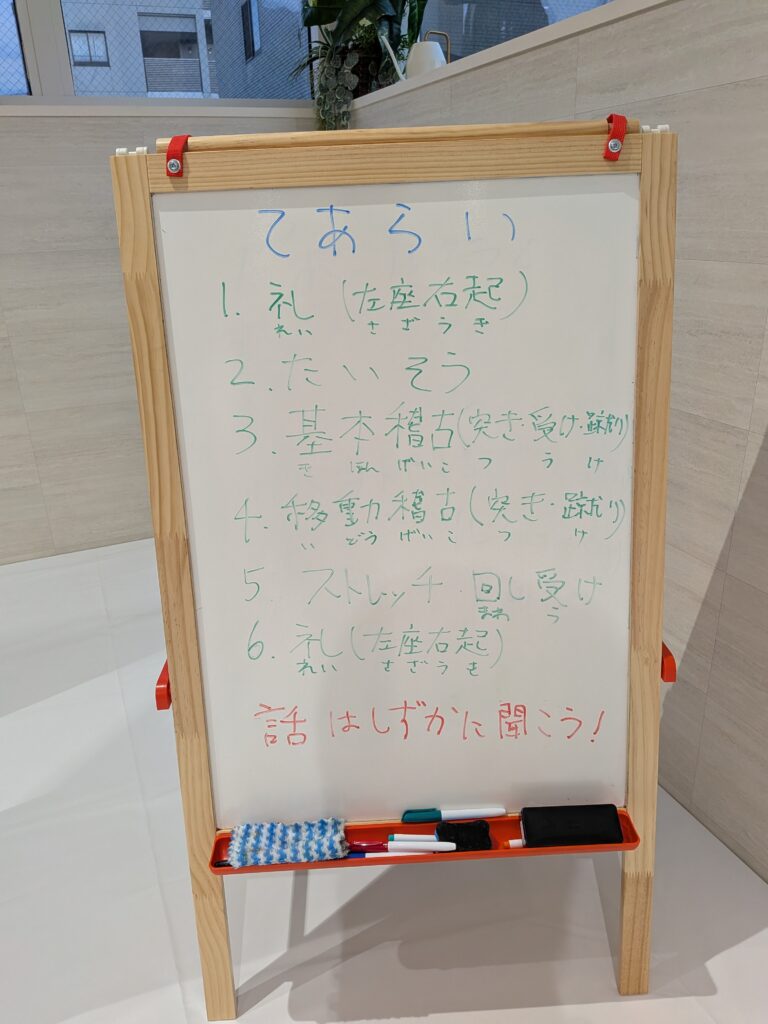 てあらい
1. 礼 (左座右起)
れい さ ざ う き
2. たいそう
3. 基本稽古(突き・受け・蹴り)
き ほん げい こ つ う け
4. 移動稽古(突き・蹴り)
い どう げい こ つ け
5. ストレッチ・回し受け
まわ う
6. 礼(左座右起)
れい さ ざ う き
話はしずかに聞こう!